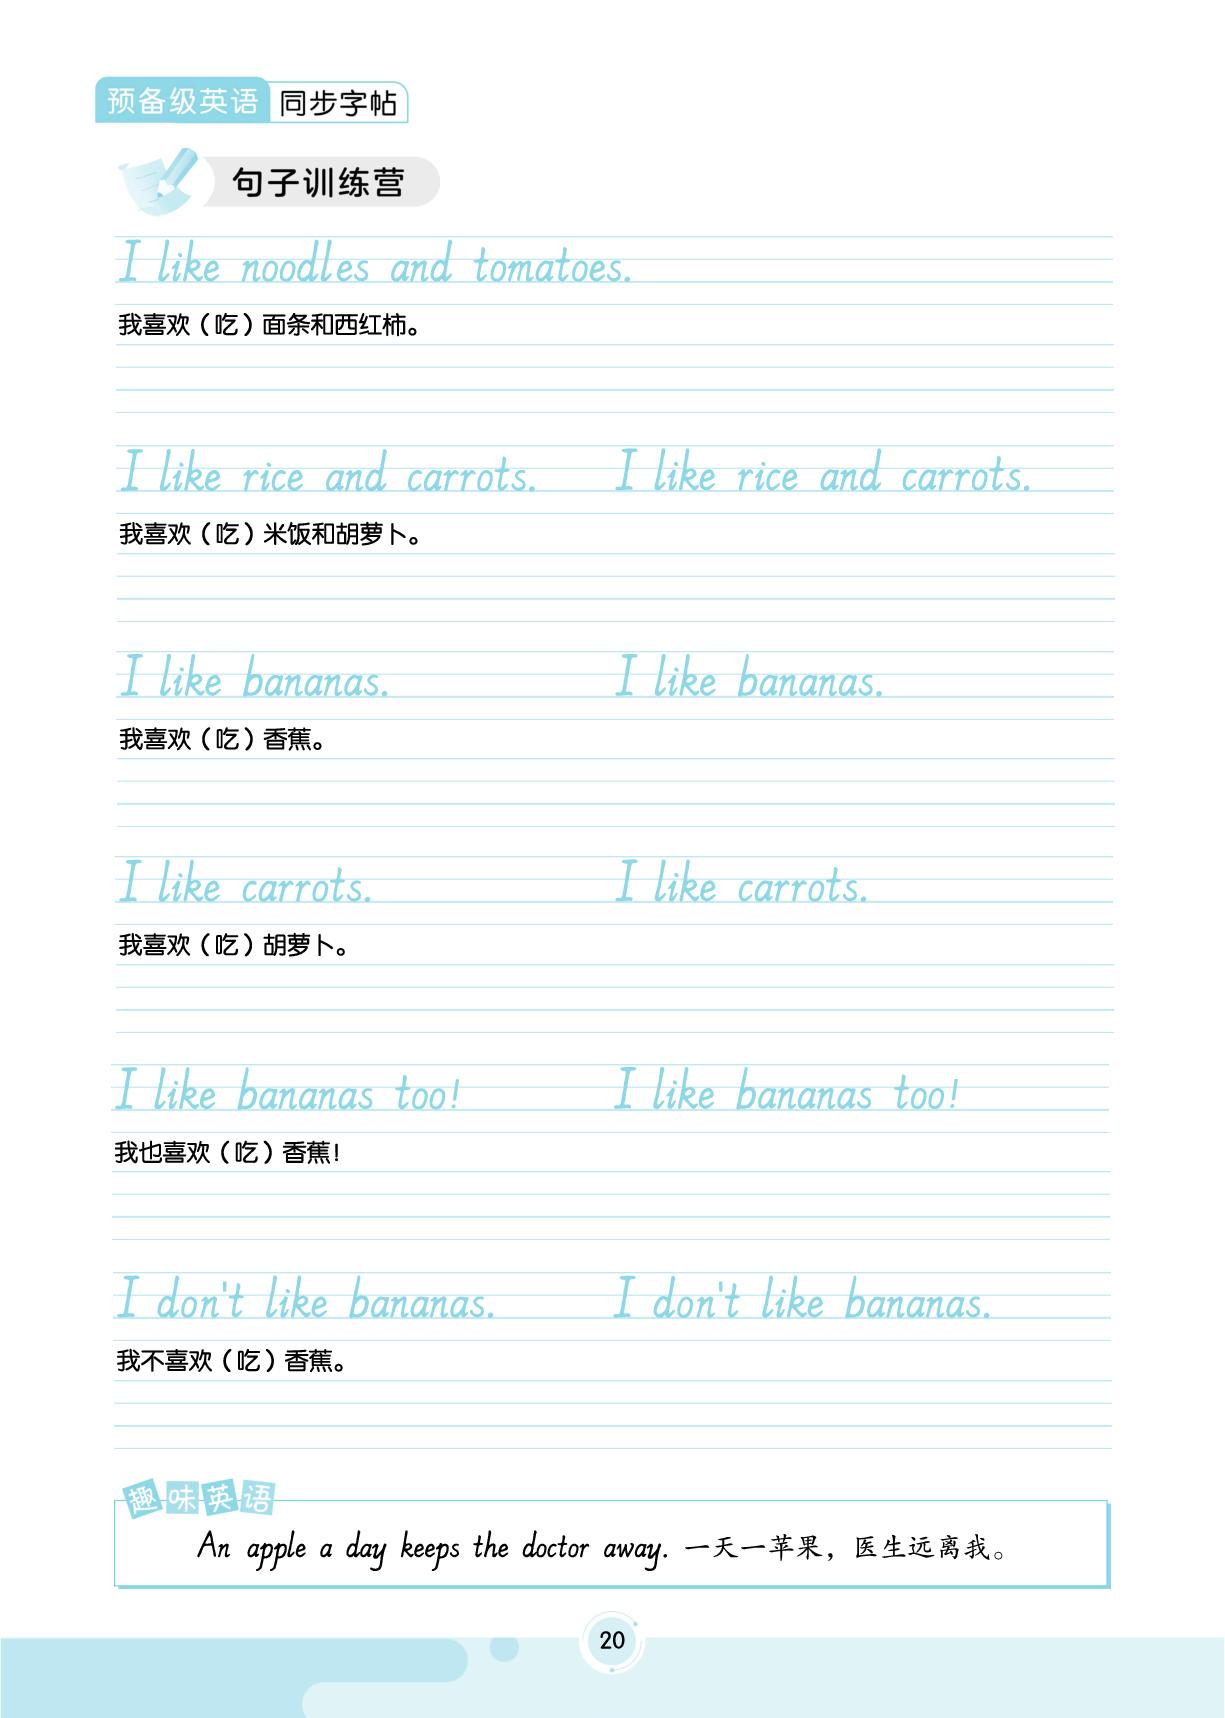 预备级英语 同步字帖
句子训练营
I like noodles and tomatoes.
我喜欢（吃）面条和西红柿。
I like rice and carrots. I like rice and carrots.
我喜欢（吃）米饭和胡萝卜。
I like bananas. I like bananas.
我喜欢（吃）香蕉。
I like carrots. I like carrots.
我喜欢（吃）胡萝卜。
I like bananas too! I like bananas too!
我也喜欢（吃）香蕉！
I don't like bananas. I don't like bananas.
我不喜欢（吃）香蕉。
趣味英语
An apple a day keeps the doctor away. 一天一苹果，医生远离我。
20